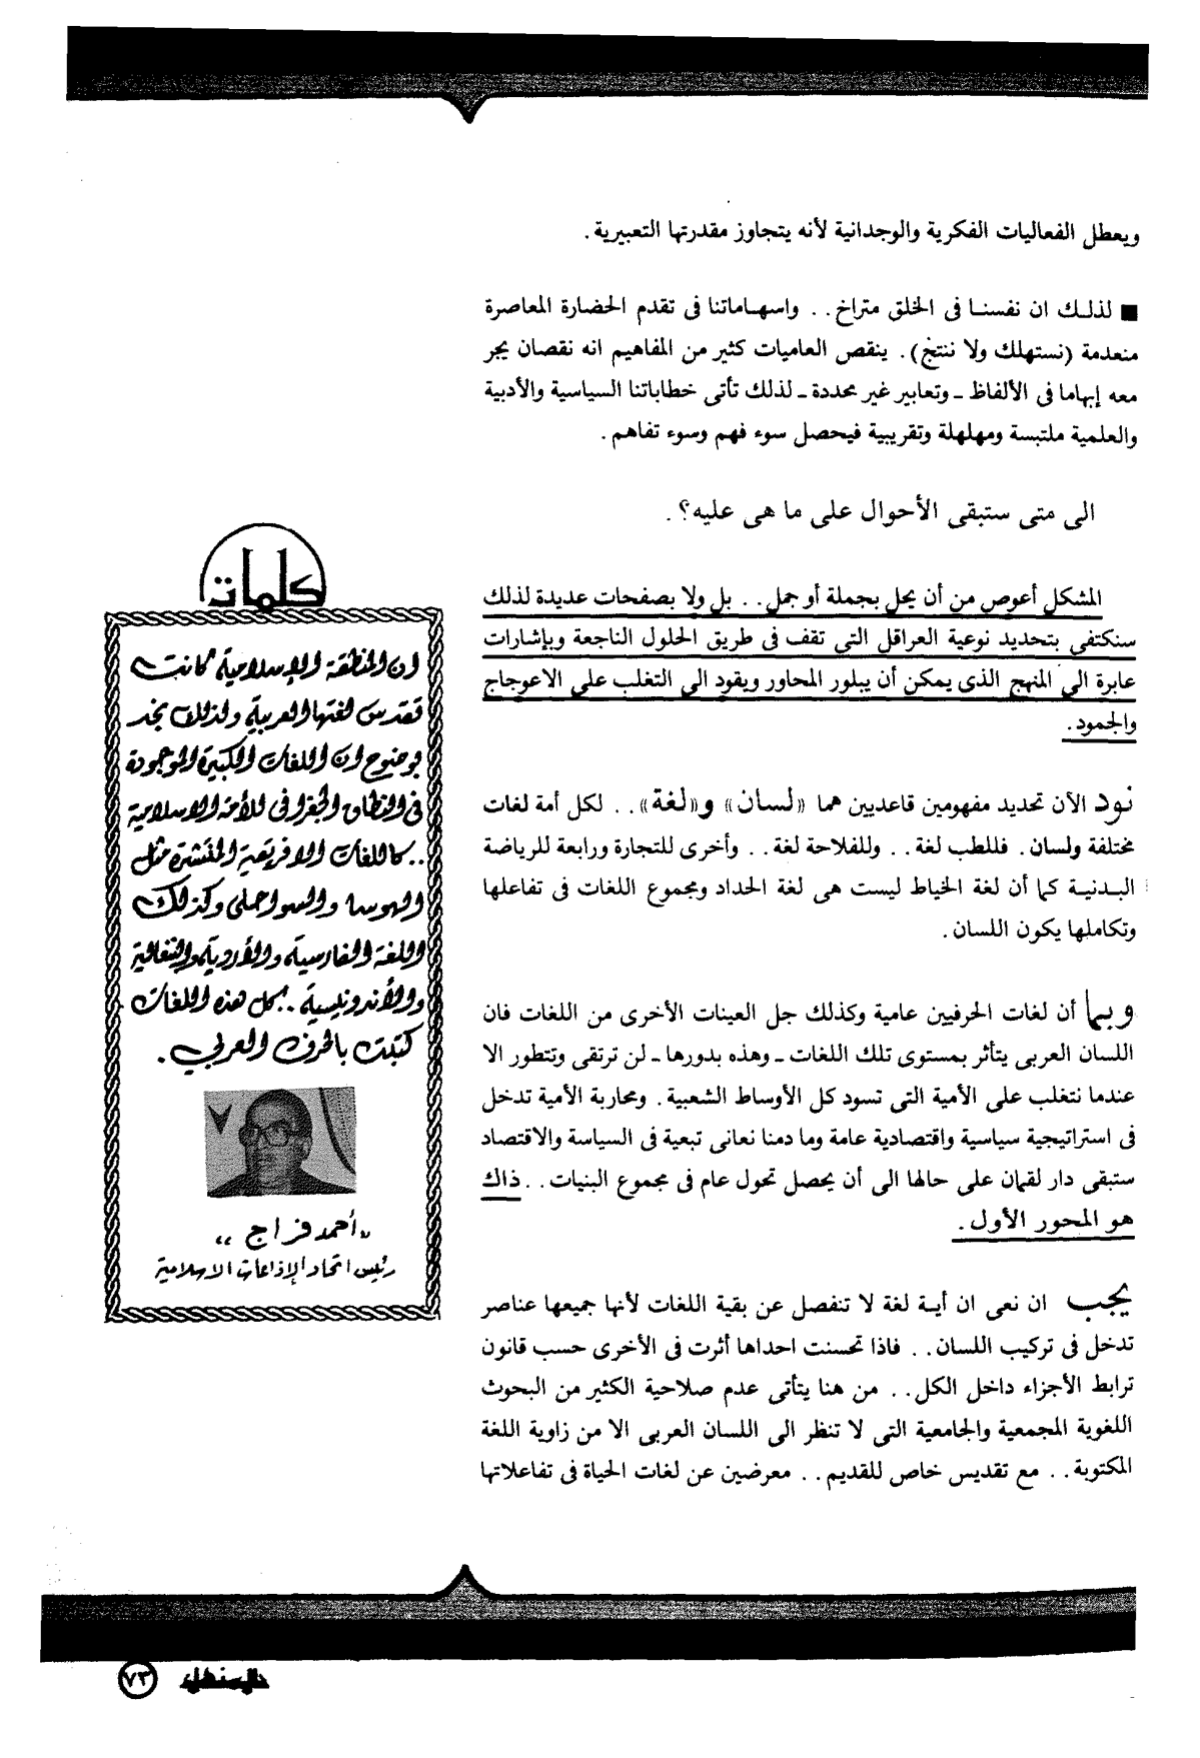 ويعطل الفعاليات الفكرية والوجدانية لأنه يتجاوز مقدرتها التعبيرية.
■ لذلك ان نفسنا فى الخلق متراخ.. واسهاماتنا فى تقدم الحضارة المعاصرة
منعدمة (نستهلك ولا ننتج). ينقص العاميات كثير من المفاهيم انه نقصان يجر
معه إبهاما فى الألفاظ ـ وتعابير غير محددة ـ لذلك تأتى خطاباتنا السياسية والأدبية
والعلمية ملتبسة ومهلهلة وتقريبية فيحصل سوء فهم وسوء تفاهم.
الى متى ستبقى الأحوال على ما هى عليه؟.
المشكل أعوص من أن يحل بجملة أو جمل.. بل ولا بصفحات عديدة لذلك
سنكتفي بتحديد نوعية العراقل التي تقف فى طريق الحلول الناجعة وبإشارات
عابرة الى المنهج الذى يمكن أن يبلور المحاور ويقود الى التغلب على الاعوجاج
والجمود.
نود الآن تحديد مفهومين قاعديين هما «لسان» و«لغة».. لكل أمة لغات
مختلفة ولسان. فللطب لغة.. وللفلاحة لغة.. وأخرى للتجارة ورابعة للرياضة
البدنية كما أن لغة الخياط ليست هى لغة الحداد ومجموع اللغات فى تفاعلها
وتكاملها يكون اللسان.
وبما أن لغات الحرفيين عامية وكذلك جل العينات الأخرى من اللغات فان
اللسان العربى يتأثر بمستوى تلك اللغات ـ وهذه بدورها ـ لن ترتقى وتتطور الا
عندما نتغلب على الأمية التى تسود كل الأوساط الشعبية. ومحاربة الأمية تدخل
فى استراتيجية سياسية واقتصادية عامة وما دمنا نعانى تبعية فى السياسة والاقتصاد
ستبقى دار لقمان على حالها الى أن يحصل تحول عام فى مجموع البنيات.. ذاك
هو المحور الأول.
يجب ان نعى ان أية لغة لا تنفصل عن بقية اللغات لأنها جميعها عناصر
تدخل فى تركيب اللسان.. فاذا تحسنت احداها أثرت فى الأخرى حسب قانون
ترابط الأجزاء داخل الكل.. من هنا يتأتى عدم صلاحية الكثير من البحوث
اللغوية المجمعية والجامعية التى لا تنظر الى اللسان العربى الا من زاوية اللغة
المكتوبة.. مع تقديس خاص للقديم.. معرضين عن لغات الحياة فى تفاعلاتها
كلمات
ان المنطقة الإسلامية كانت
تقدس لغتها العربية ولذلك نجد
بوضوح ان اللغات الكبيرة الموجودة
فى النطاق الجغرافى للأمة الاسلامية
.. كاللغات الافريقية المنتشرة مثل
الهوسا والسواحلى وكذلك
اللغة الفارسية والأردية
والأندونيسية.. كل هذه اللغات
كتبت بالحرف العربي.
«أحمد فراج»
رئيس اتحاد الإذاعات الاسلامية
المنهل
٧٣